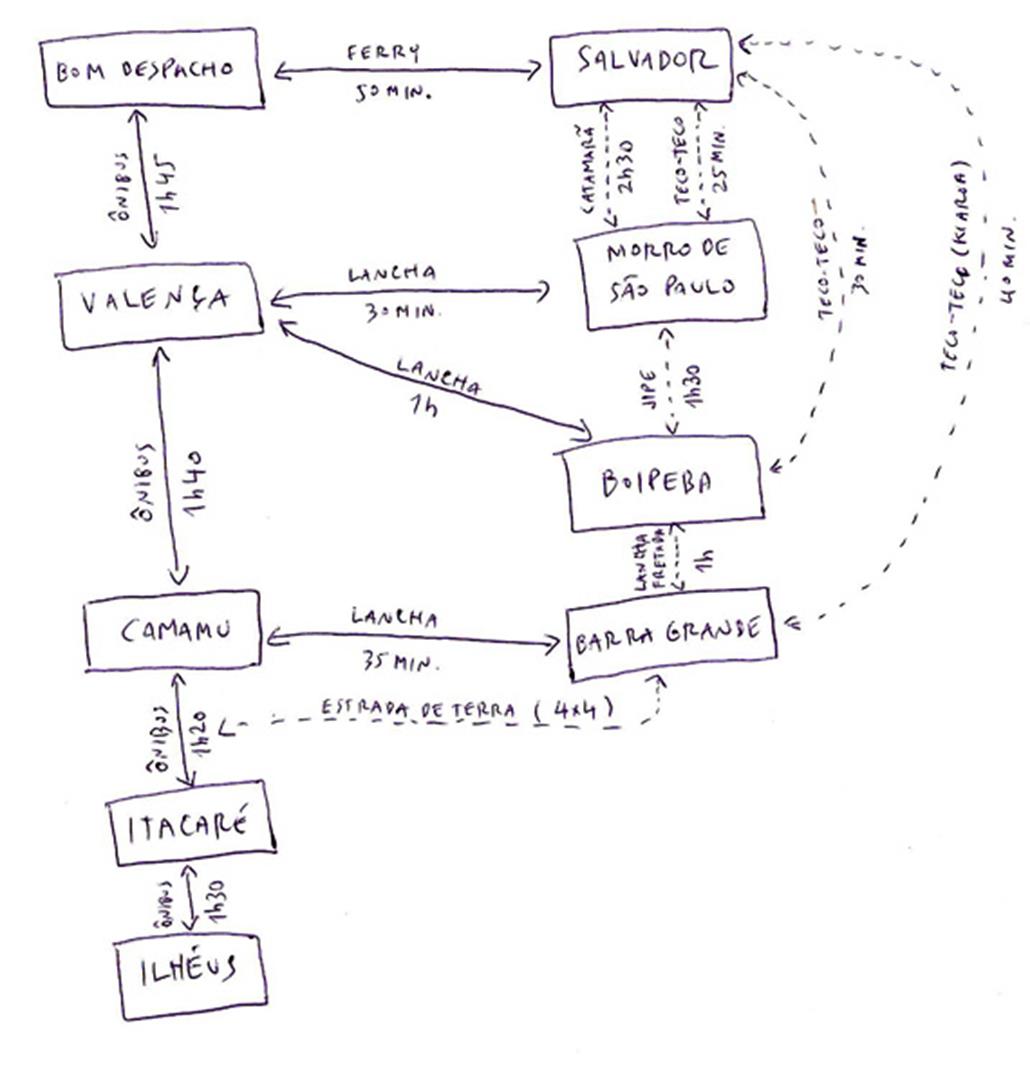 BOM DESPACHO
FERRY
50 MIN.
SALVADOR
ÔNIBUS
1h45
CATAMARÃ
2h30
TECO-TECO
25 MIN.
TECO-TECO
30 MIN.
TECO-TECO (KIAROA)
40 MIN.
VALENÇA
LANCHA
30 MIN.
MORRO DE
SÃO PAULO
LANCHA
1h
JIPE
1h30
ÔNIBUS
1h40
BOIPEBA
LANCHA
FRETADA
1h
CAMAMU
LANCHA
35 MIN.
BARRA GRANDE
ÔNIBUS
1h20
ESTRADA DE TERRA (4x4)
ITACARÉ
ÔNIBUS
1h30
ILHÉUS